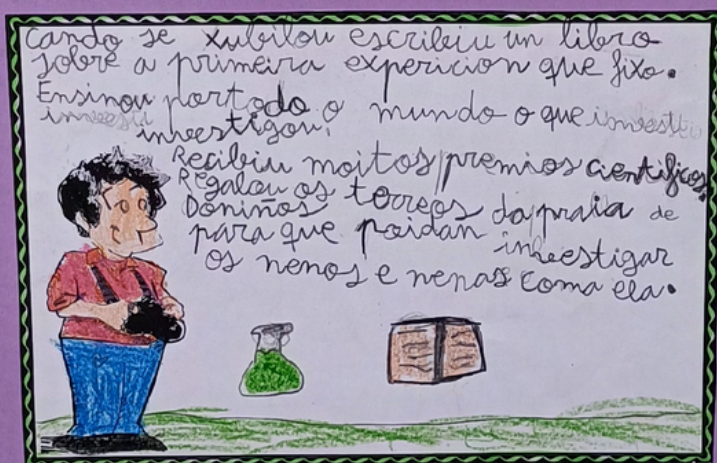 cando se xubilou escribiu un libro
sobre a primeira expericion que fixo.
Ensinou portodo o mundo o que
investigou.
Recibiu moitos premios cientificos,
Regalou os terreos da praia de
Doniños
para que poidan investigar
os nenos e nenas coma ela.